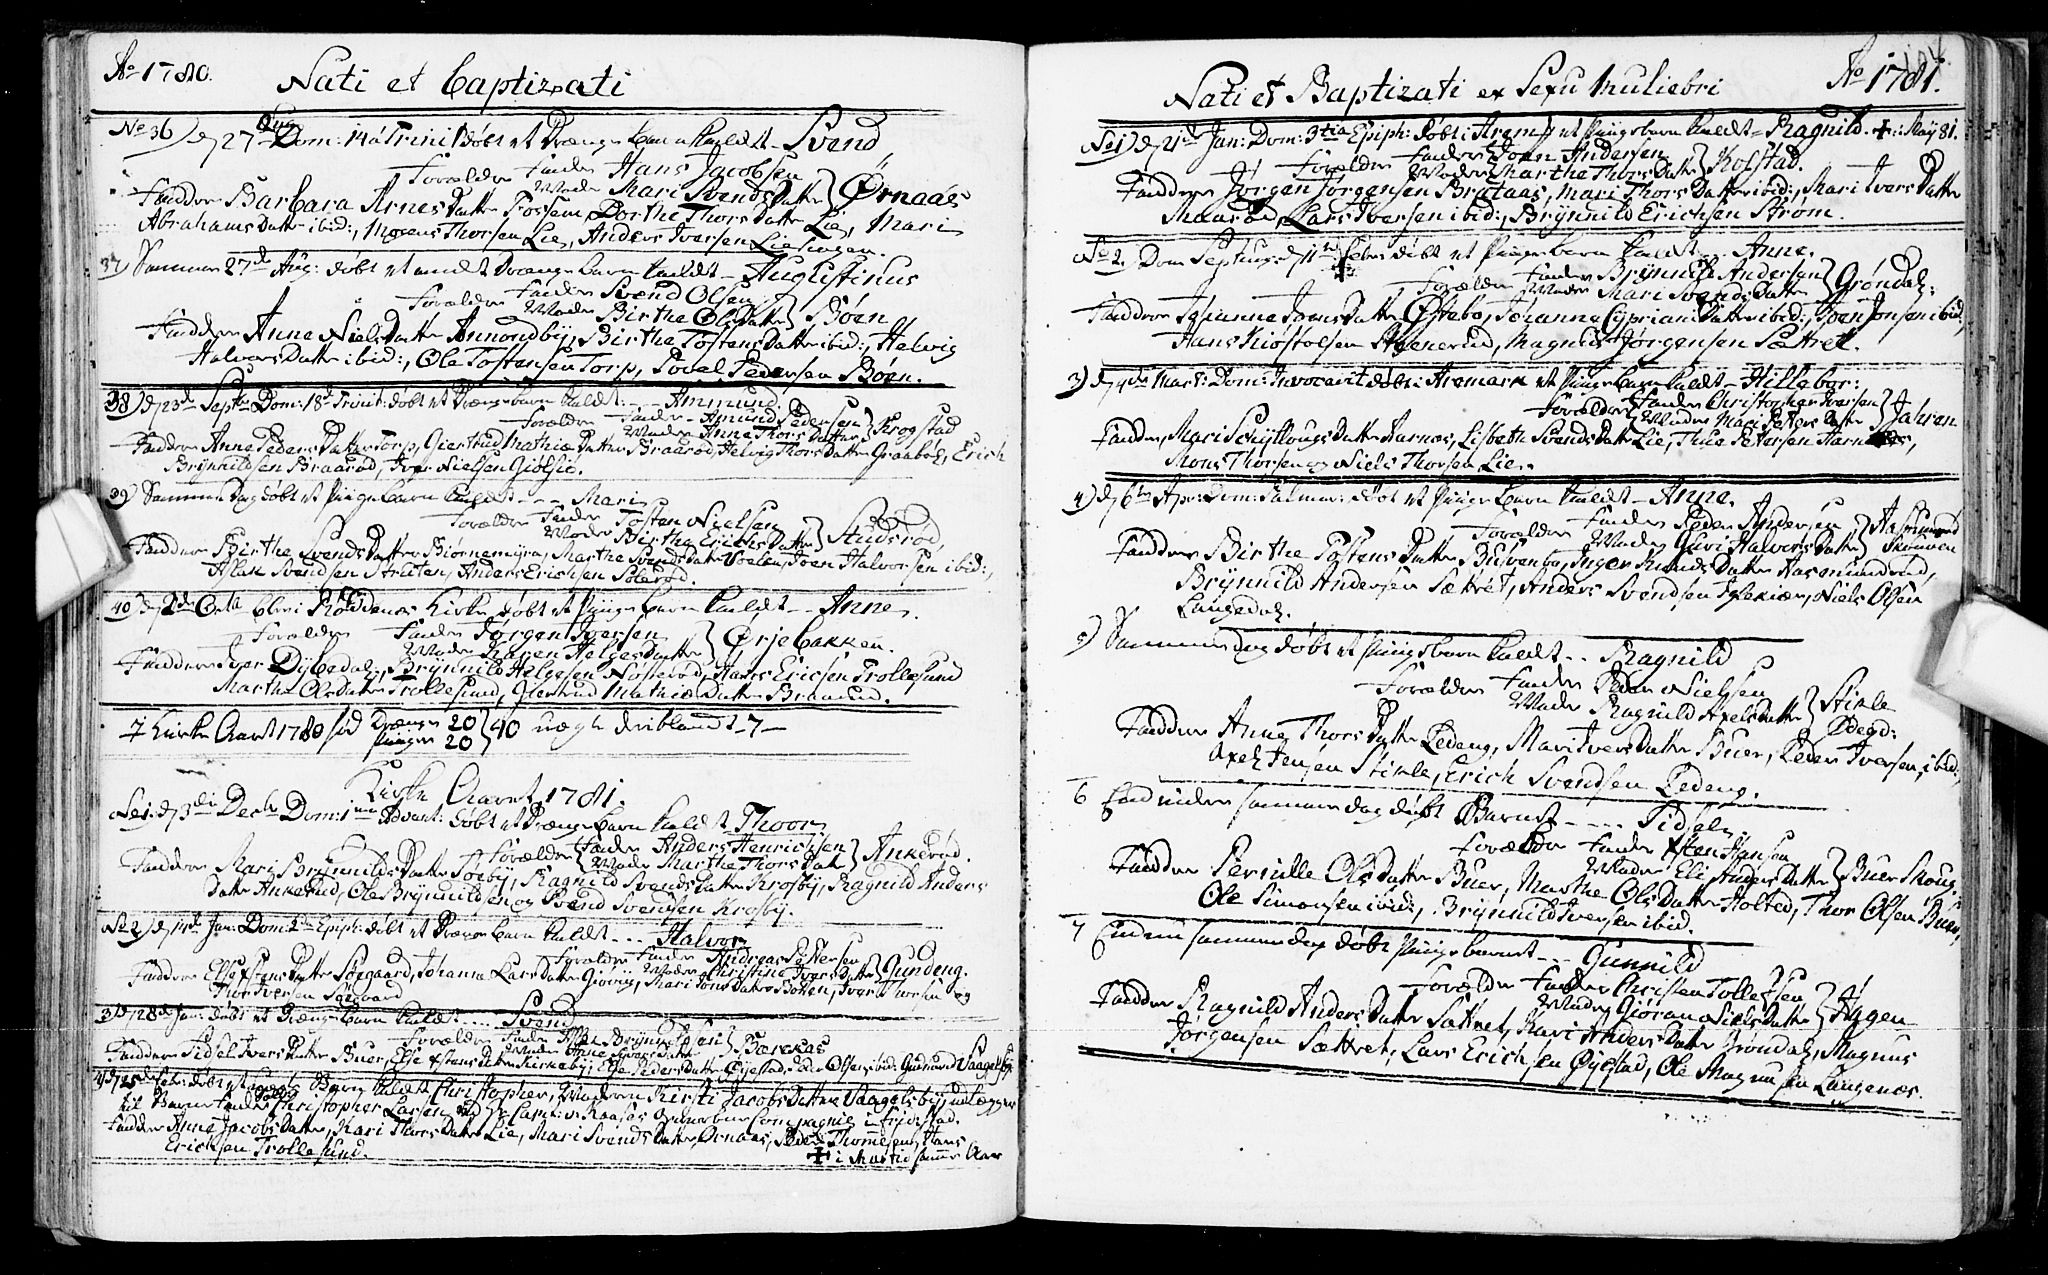 Ao 1780.
Nati et baptizati
No 36) d 27 Aug: Dom: 14 a Trinit døbt et Drænge barn kaldet - Svend
Forældre Fader Hans Jacobsen
Moder Mari SvendsDatter } Ørnaaes
Faddere Barbara ArnesDatter Fossem, Dorthe ThorsDatter Lie, Mari
AbrahamsDatter ibid:, Mogens Thorsen Lie, Anders Iversen
37) Samme 27de Aug: døbt et Drænge barn kaldet - Augustinus
Forældre Fader Svend Olsen
Moder Birthe OlsDatter } Bøen
Faddere Anne NielsDatter Ammondbÿ, Birthe TostensDatter ibid:, Helvig
HalvorsDatter ibid:, Ole Tostensen Torp, Povel Pedersen Bøen.
38) d 23d Septbr Dom: 18d Trinit: døbt et Drænge barn kaldet - - Ammund
Forældre Fader Amund Pedersen
Moder Anne ThorsDatter } Krogstad
Faddere Anne PedersDatter Torp, Giertrud MathiæDatter Braarød, Helvig ThorsDatter Graabøl, Erich
Brÿnildsen Braarød, Iver Nielsen Giølsiø.
39) Samme Dag døbt et Piige barn kaldet - - - Mari
Forældre Fader Tosten Nielsen
Moder Birthe ErichsDatter } Studsrød
Faddere Birthe SvendsDatter Biørnemÿra, Marthe SvendsDatter, Joen Halvorsen ibid:,
Aslak Svendsen Struten, Anders Erichsen
40) d 2de Octb blev i Rødenæs Kirke døbt et Piige barn kaldet - - Anne.
Forældre Fader Jørgen Iversen
Moder Karen HelgesDatter } Ørjebakken.
Faddere Iver Dÿbedal, Brÿnnild Helgesen, Hans Ericsen Trollesund
Marthe OlsDatter Trollesund, Giertrud MathiæDatter Braarud.
I Kirke Aaret 1780 fød Drænger 20
Piiger 20 } 40 uægte deriblandt - 7 -
Kirke Aaret 1781.
No 1. d 3die Decbr Dom: 1ma Advent: døbt et Drænge barn kaldet Thoor
Forældre Fader Anders Henrichsen
Moder Marthe ThorsDatter } Ankerød.
Faddere Mari BrÿnnildsDatter, Ragnild SvendsDatter Krosbÿ, Ragnild Anders
Datter Ankerud, Ole Brÿnnildsen og Svend Svendsen Krosbÿ.
No 2) d 14d Jan: Dom: 2da Epiph: døbt et Drænge barn kaldet - - - Halvor
Forældre Fader Andreas Pettersen
Moder Christine IversDatter } Gundeng.
Faddere Else Datter Søegaard, Johanna LarsDatter Giøviig, Mari JonsDatter, Iver Thorsen og
Thor Iversen Søegaard
3) d 28de Jan: døbt et Drænge barn kaldet - - - - Svend
Forældre Fader Brÿnnildsen
Moder Anne IversDatter } Bærekas
Faddere Sidsel IversDatter Buer, Else Datter Kirkebÿ, Else PedersDatter Øiestad, Peder Olsen ibid: Gudmund Vaagelsbÿ.
4) d 25de Febr: døbt et uægte Barn kaldet Christopher, Moderen Kirsti JacobsDatter Vaagelsbÿ, udlægger
til Barnefader Christopher Larsen ved Capt: v: Kaasøs Compagnie i Fridrstad.
Faddere Anne JacobsDatter, Kari ThorsDatter Lie, Mari SvendsDatter Ørnaas, Peder Thomesen, Hans
Erichsen Trollesund.
+ i Martii samme Aar
Nati et Baptizati ex Sexu Muliebri
Ao 1781.
No 1) d 21de Jan: Dom: 3tia Epiph: døbt i Arem: et Piigebarn kaldet - Ragnild. + i Maÿ 81.
Forældre Fader Joen Andersen
Moder Marthe ThorsDatter } Kolstad.
Faddere Jørgen Jørgensen Brataas, Mari ThorsDatter ibid:, Mari IversDatter
Skaarød, Lars Iversen ibid:, Brÿnnild Erichsen Strøm.
No 2. Dom Septuag: d 11te Febr: døbt et Piige barn kaldet - - Anne.
Forældre Fader Brÿnnild Andersen
Moder Mari SvendsDatter } Grøndal:
Faddere Johanne JonsDatter Østebø, Johanne CÿprianiDatter ibid:, Joen Jonsen ibid,
Hans Kiøstelsen, Magnus Jørgensen Sættret.
3) d 4de Mart: Dom: Invocavit døbt i Aremark et Piige barn kaldet - Hilleborr:
Forældre Fader Christopher Iversen
Moder Mari PetersDatter } Jahren
Faddere, Mari Datter Aarnæs, Lisbeth SvendsDatter Lie, Thue Petersen Aarnæs,
Mons Thorsen og Niels Thorsen Lie.
4) d 6te Apr: Dom: Palmar: døbt et Piige barn kaldet - Anne.
Forældre Fader Peder Andersen
Moder Guri HalvorsDatter } Aasmunrød
Skoven
Faddere Birthe TostensDatter, Inger Datter Aasmundrud,
Brÿnnild Andersen Sættret, Anders Svendsen, Niels Olsen
Langedal.
5) Samme dag døbt et Piige barn kaldet - - Ragnild
Forældre Fader Peder Nielsen
Moder Ragnild AxelsDatter } Stikle
Ødegd:
Faddere Anne ThorsDatter Ledeng, Mari IversDatter Buer, Peder Iversen ibid:,
Axel Jensen Stikle, Erich Svendsen Ledeng.
6 End videre samme dag døbt Barnet - - - - Sidsel
Forældre Fader Hansen
Moder Eli AndersDatter } Buer Skoug
Faddere Pernille OlsDatter Buer, Marthe OlsDatter Holted, Thor Olsen Buer,
Ole Simonsen ibid:, Brÿnnild Iversen ibid.
7 End nu samme dag døbt Piige barnet - - - Gunnild
Forældre Fader Christen Tollefsen
Moder Giøran NielsDatter } Høgen
Faddere Ragnild AndersDatter Sættret, Kari AndersDatter Grøndal, Magnus
Jørgensen Sættret, Lars Erichsen Øÿestad, Ole Magnusen Langenæs.